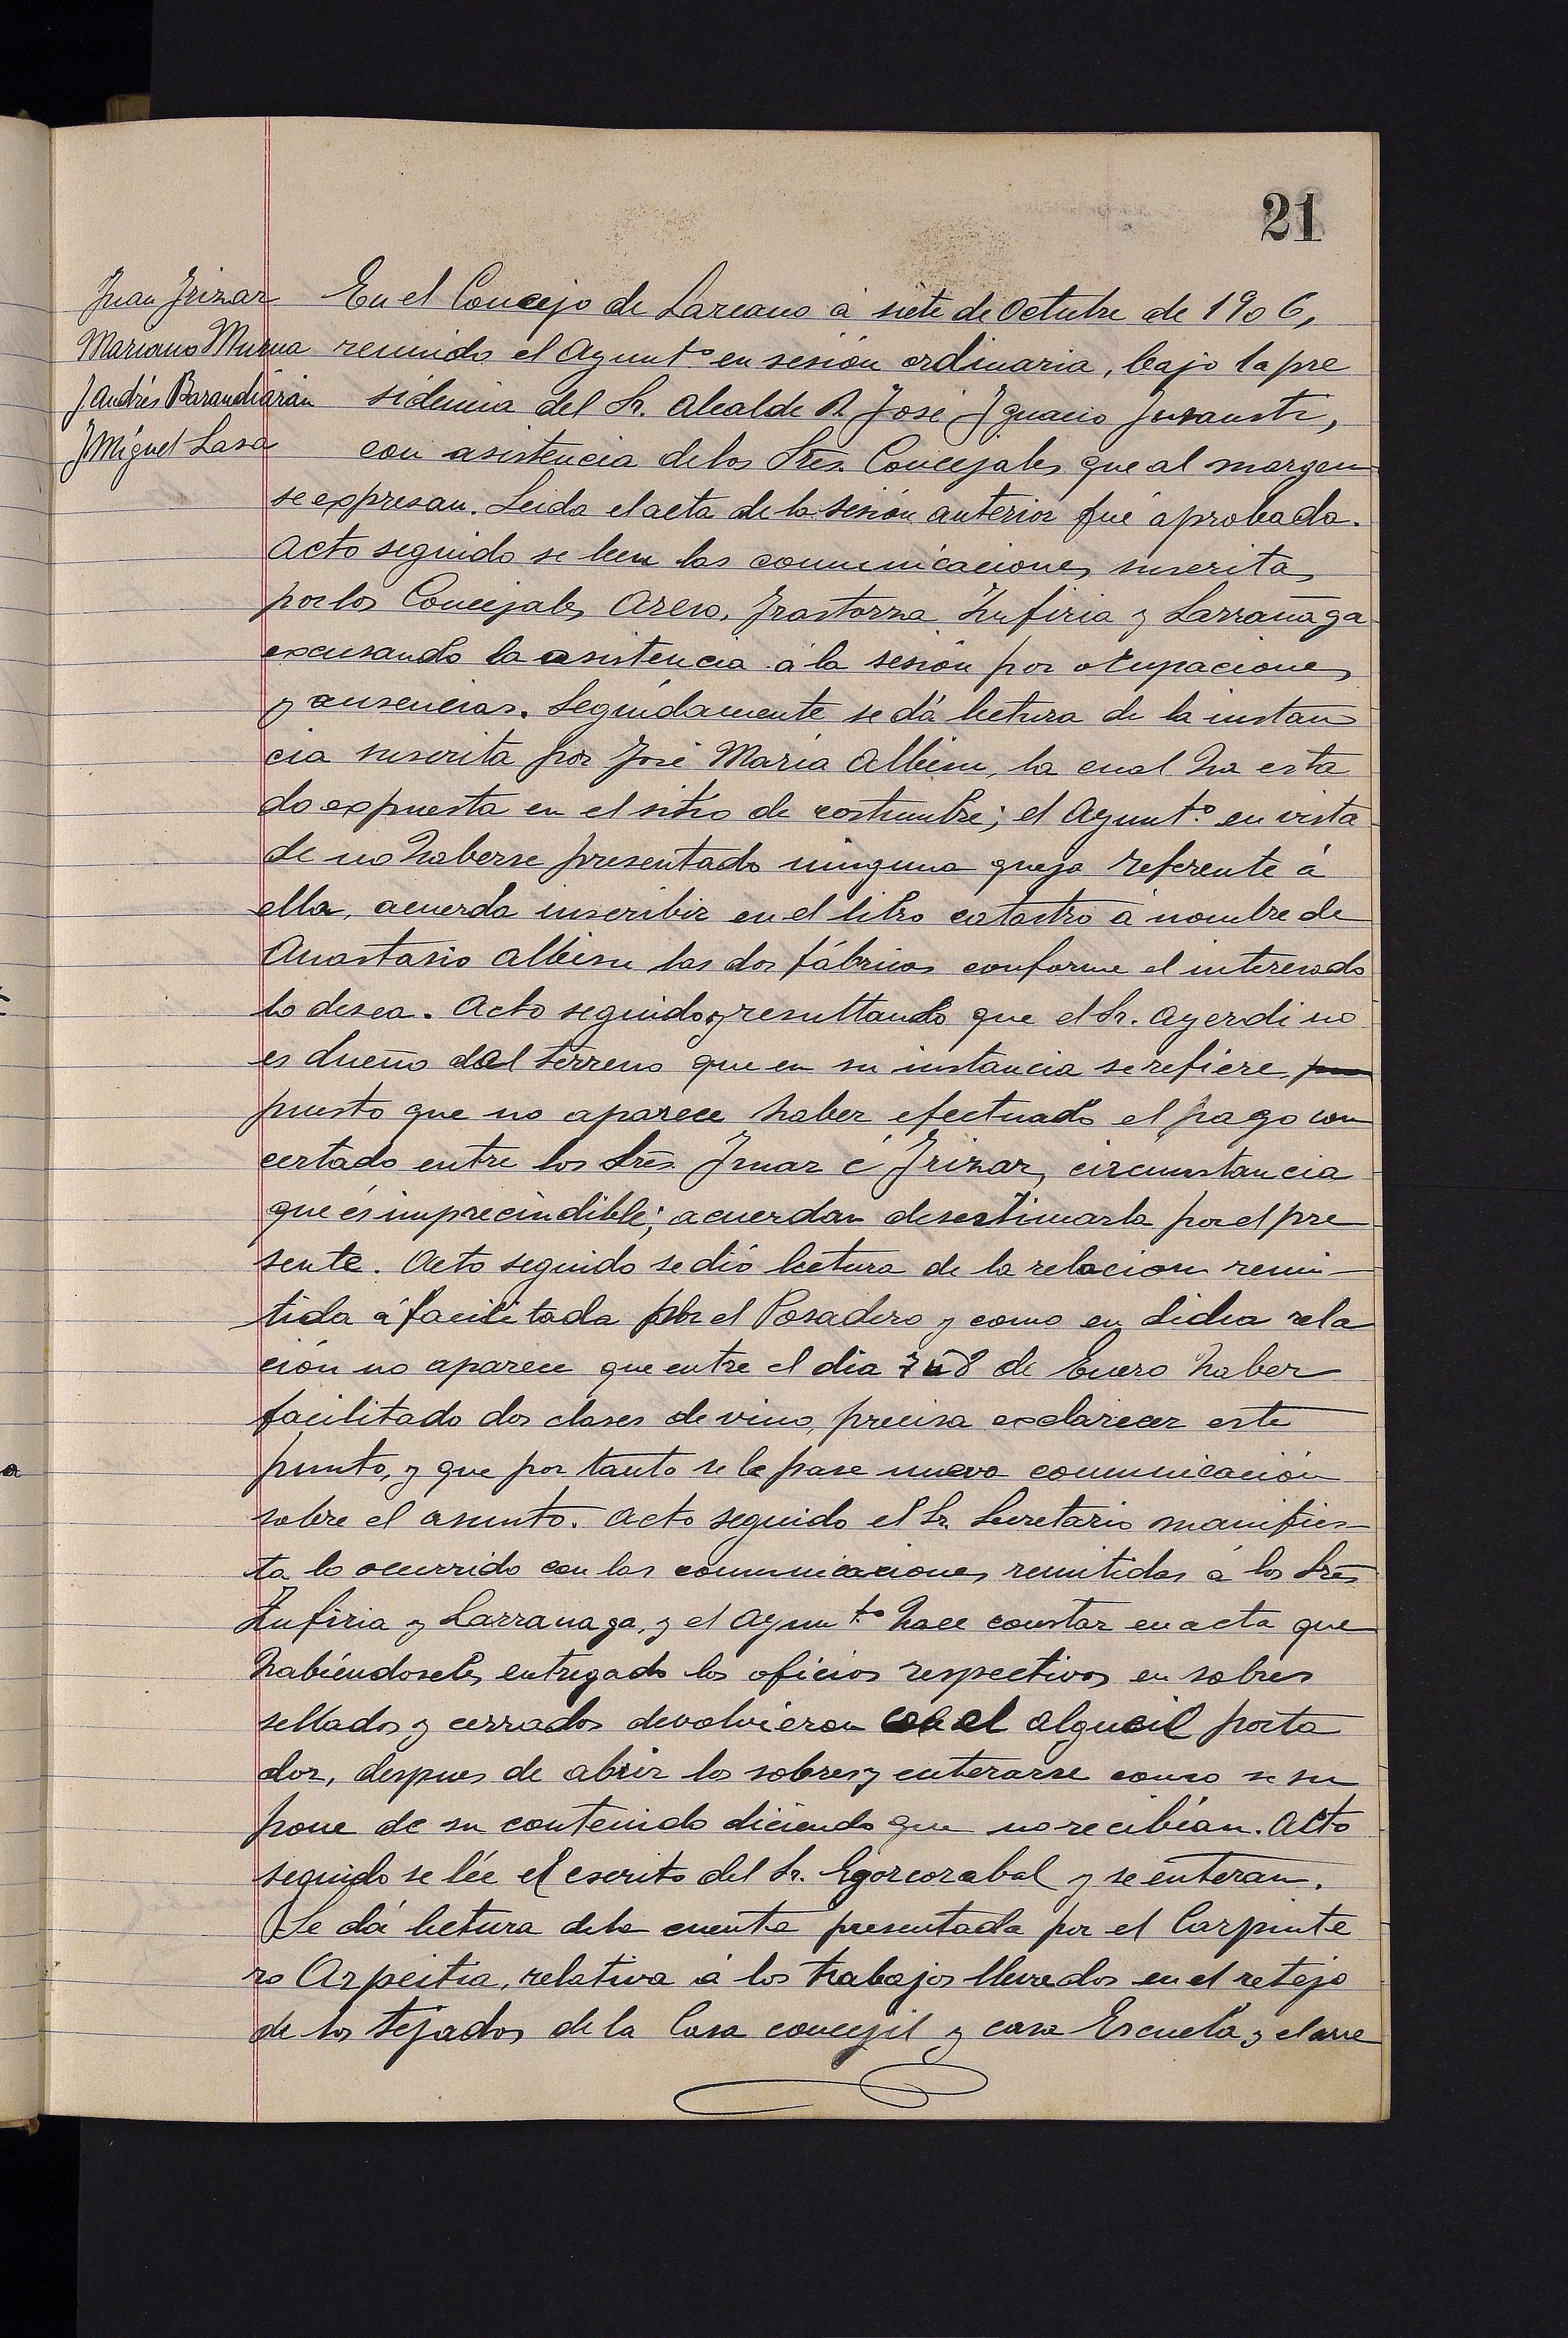 21
Juan Irizar
Mariano Murua
J Andrés Barandiarán
J Miguel Lasa
En el Concejo de Lazcano á siete de Octubre de 1906,
reunido el Ayuntº en sesión ordinaria, bajo la pre
sidencia del Sr. Alcalde D. José Ignacio
con asistencia de los Sres. Concejales que al margen
se expresan. Leida el acta de la sesión anterior fué aprobada.
Acto seguido se leen las comunicaciones suscritas
por los Concejales Irastorza Zufiria y Larrañaga
excusando la asistencia á la sesión por ocupaciones
y ausencias. Seguidamente se dá lectura de la instan
cia suscrita por José María Albisu, la cual ha esta
do expuesta en el sitio de costumbre; el Ayuntº. en vista
de no haberse presentado ninguna queja referente á
ella, acuerda inscribir en el libro catastro á nombre de
Anastasio Albisu las dos fábricas conforme el interesado
lo desea. Acto seguido y resultando que el Sr. Ayerdi no
es dueño del terreno que en su instancia se refiere,
puesto que no aparece haber efectuado el pago con
certado entre los Sres. é Irizar, circunstancia
que és imprecindible; acuerdan desestimarla por el pre
sente. Acto seguido se dió lectura de la relacion remi-
tida á facilitada por el Posadero y como en dicha rela
ción no aparece que entre el dia 7 u 8 de Enero haber
facilitado dos clases de vino, precisa exclarecer este
punto, y que por tanto se le pase nueva comunicación
sobre el asunto. Acto seguido el Sr. Secretario manifies-
ta lo ocurrido con las comunicaciones remitidas á los Sres
Zufiria y Larranaga, y el Ayunt.º hace constar en acta que
habiéndoseles entregado los oficios respectivos en sobres
sellados y cerrados devolvieron con el alguacil porta
dor, despues de abrir los sobres y enterarse como se su
pone de su contenido diciendo que no recibían. Acto
seguido se lée el escrito del Sr. Egorcozabal y se enteran.
Se dá lectura de la cuenta presentada por el Carpinte
ro Azpeitia, relativa á los trabajos llevados en el retejo
de los tejados de la Casa concejil y casa Escuela, y el arre